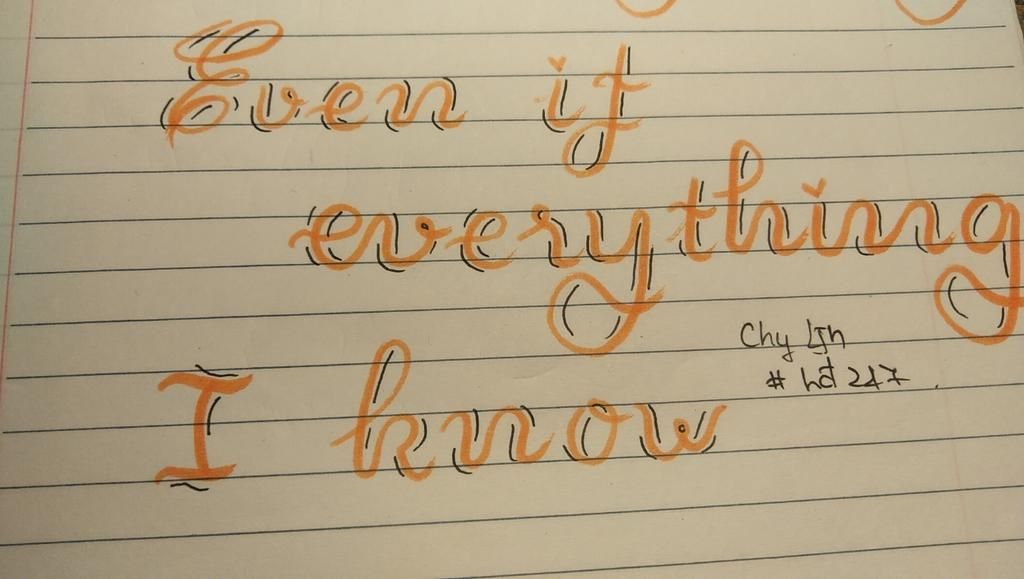 Even if
everything
I know
Chy Lỉn
# hđ 247